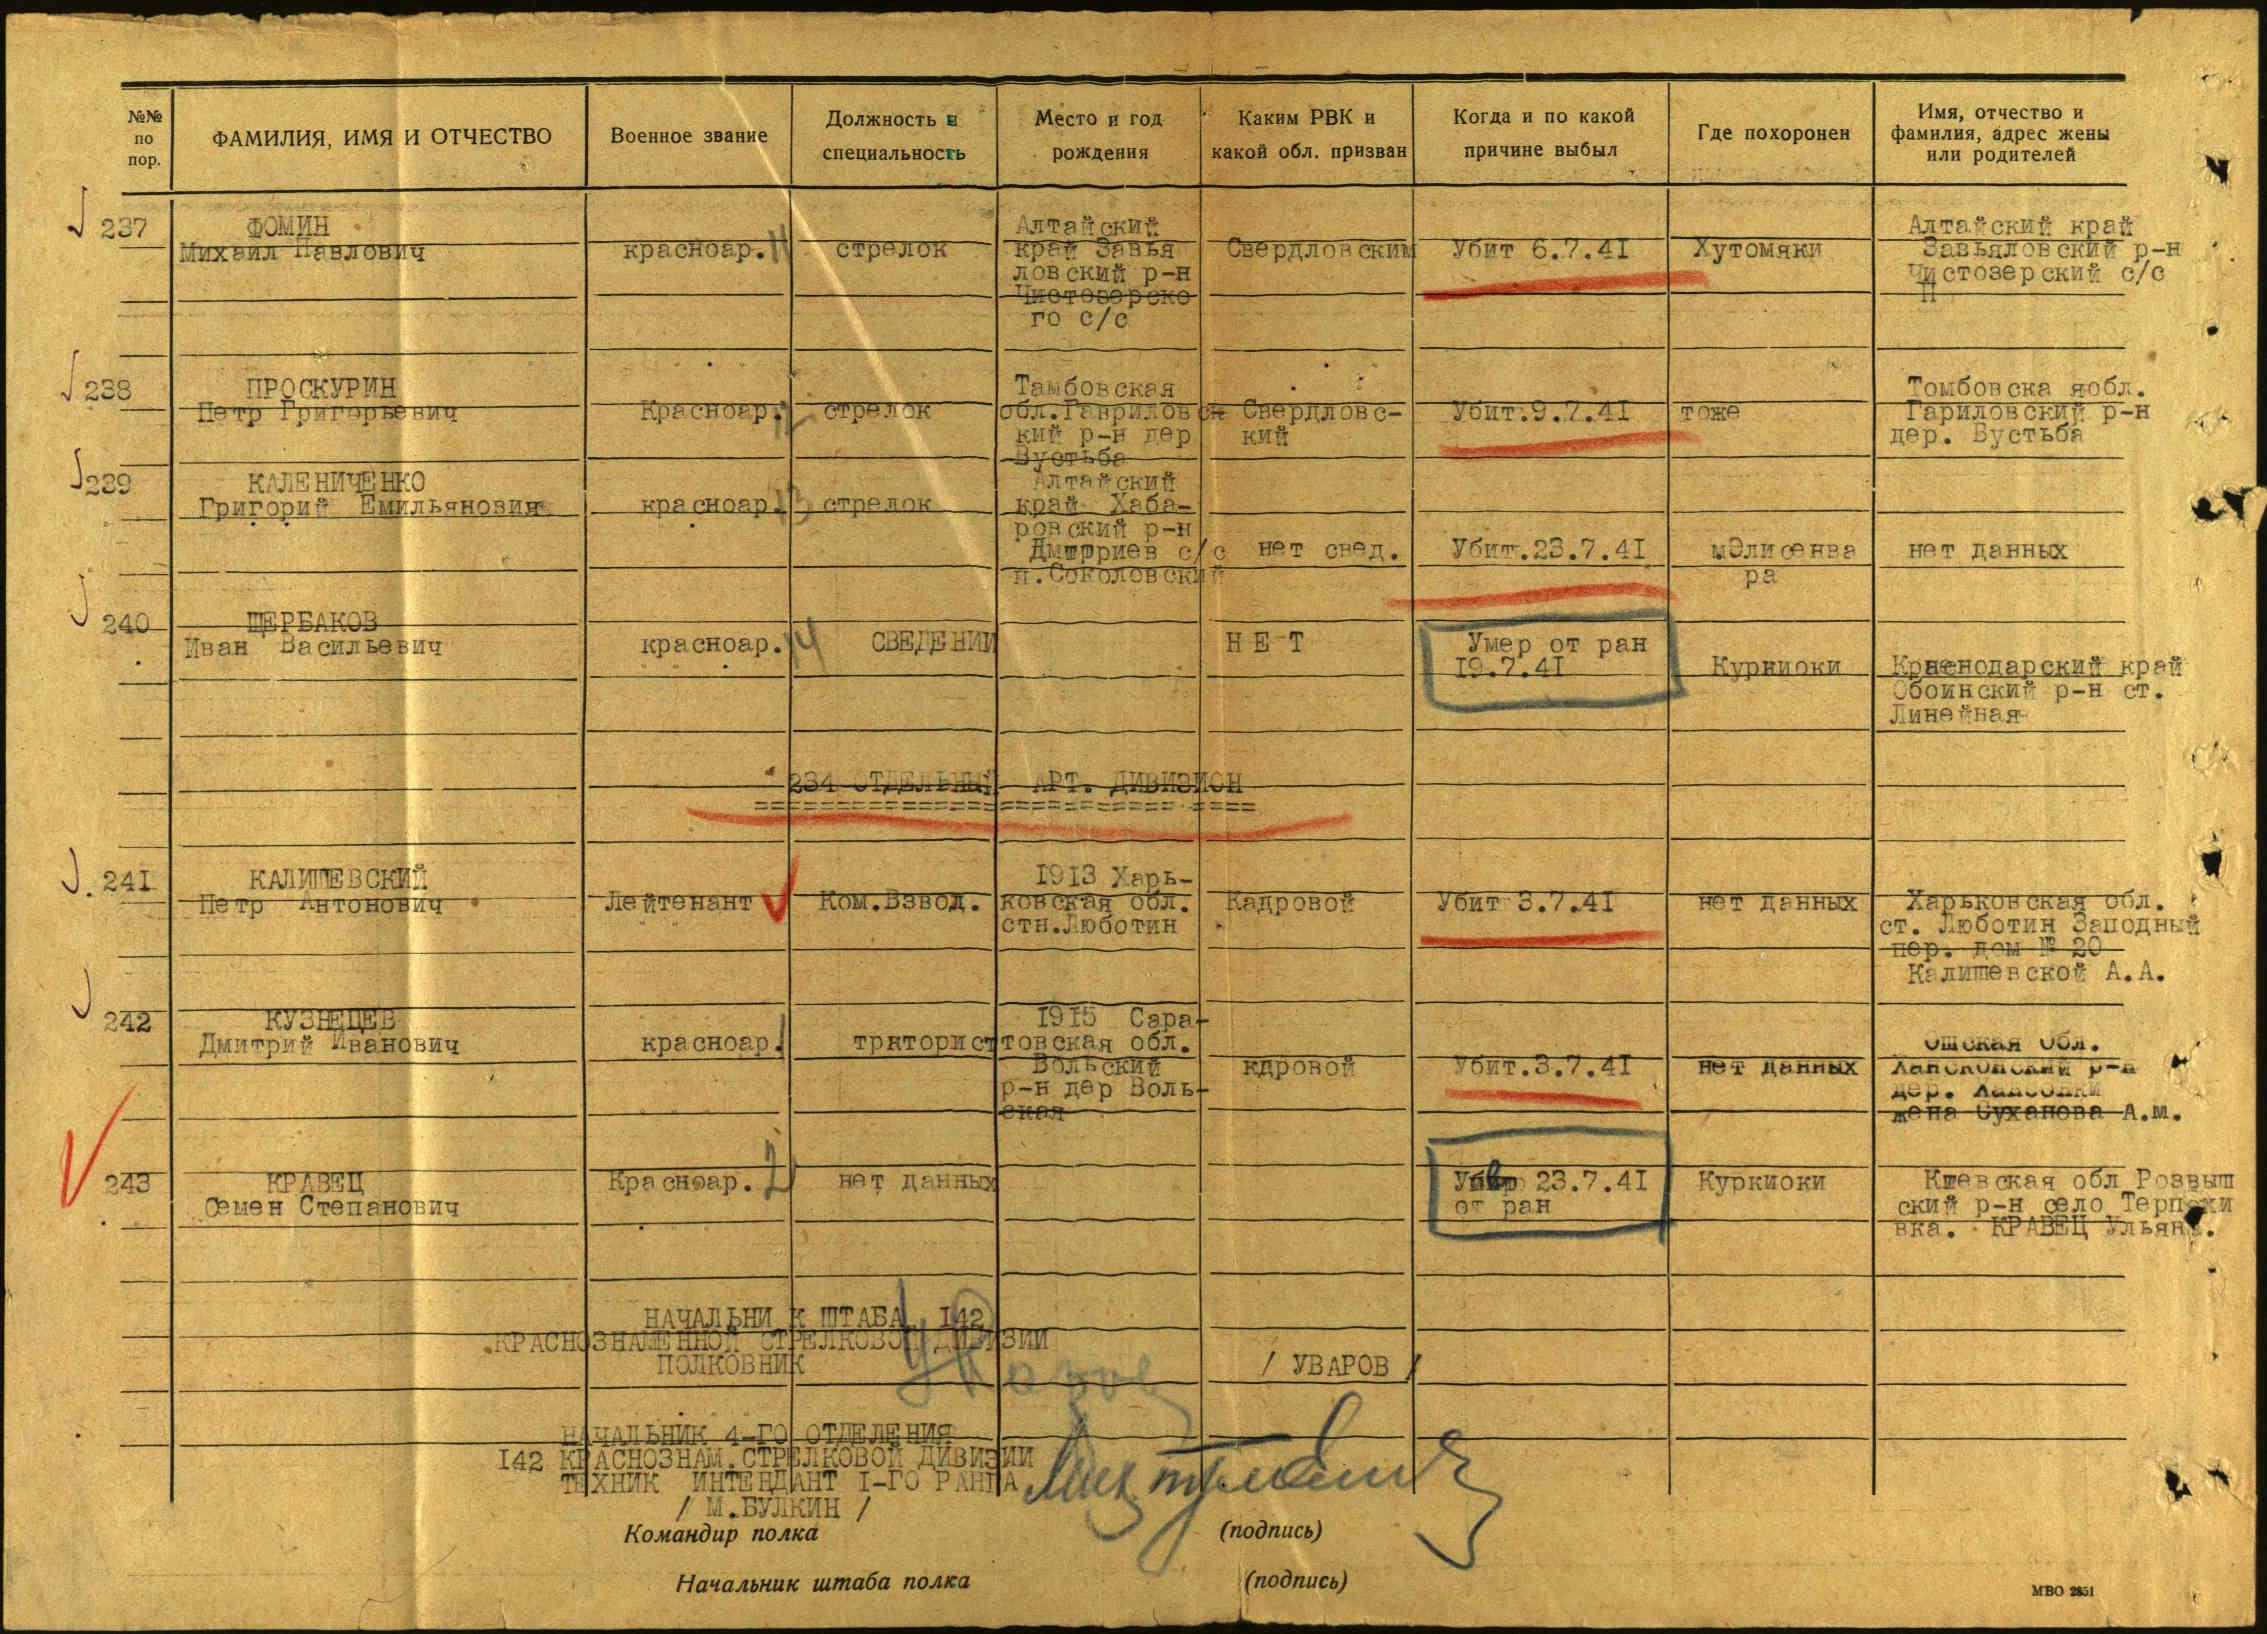 №№ по пор.
ФАМИЛИЯ, ИМЯ И ОТЧЕСТВО
Военное звание
Должность и специальность
Место и год рождения
Каким РВК и какой обл. призван
Когда и по какой причине выбыл
Где похоронен
Имя, отчество и фамилия, адрес жены или родителей
237
ФОМИН
Михаил Павлович
красноар. 11
стрелок
Алтайский
край Завья
ловский р-н
Чистозерско
го с/с
Свердловским
Убит 6.7.41
Хутомяки
Алтайский край
Завьяловский р-н
Чистозерский с/с
П
238
ПРОСКУРИН
Петр Григорьевич
Красноар. 12
стрелок
Тамбовская
обл.Гавриловск
кий р-н дер
Вустьба
Свердловс-
кий
Убит.9.7.41
тоже
Томбовска яобл.
Гариловский р-н
дер. Вустьба
239
КАЛЕНИЧЕНКО
Григорий Емильянович
красноар. 13
стрелок
Алтайский
край Хаба-
ровский р-н
Дмитриев с/с
п.Соколовский
нет свед.
Убит.23.7.41
мЭлисенва
ра
нет данных
240
ЩЕРБАКОВ
Иван Васильевич
красноар. 14
СВЕДЕНИИ
НЕТ
Умер от ран
19.7.41
Куркиоки
Краснодарский край
Обоинский р-н ст.
Линейная
234 ОТДЕЛЬНЫЙ АРТ. ДИВИЗИОН
241
КАЛИШЕВСКИЙ
Петр Антонович
Лейтенант
Ком.Взвод.
1913 Харь-
ковская обл.
стн.Люботин
Кадровой
Убит 3.7.41
нет данных
Харьковская обл.
ст. Люботин Заподный
пер. дом № 20
Калишевской А.А.
242
КУЗНЕЦЕВ
Дмитрий Иванович
красноар. 1
тркторист
1915 Сара-
товская обл.
Вольский
р-н дер Воль-
ская
кдровой
Убит.3.7.41
нет данных
Ошская обл.
р-н
дер.
жена Суханова А.м.
243
КРАВЕЦ
Семен Степанович
Красноар. 2
нет данных
23.7.41
от ран
Куркиоки
Киевская обл Розвыш
ский р-н село
вка. КРАВЕЦ Ульяна.
НАЧАЛЬНИК ШТАБА 142
КРАСНОЗНАМЕННОЙ СТРЕЛКОВОЙ ДИВИЗИИ
ПОЛКОВНИК
/ УВАРОВ /
НАЧАЛЬНИК 4-ГО ОТДЕЛЕНИЯ
142 КРАСНОЗНАМ.СТРЕЛКОВОЙ ДИВИЗИИ
ТЕХНИК ИНТЕНДАНТ 1-ГО РАНГА
/ М.БУЛКИН /
Командир полка
(подпись)
Начальник штаба полка
(подпись)
МВО 2851